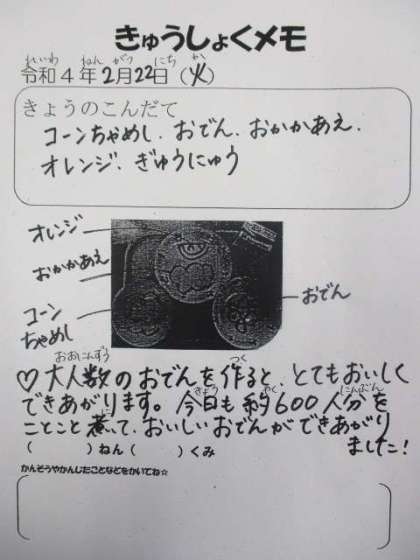 きゅうしょくメモ
れいわ ねん がつ にち か
令和4年2月22日(火)
きょうのこんだて
コーンちゃめし、おでん、おかかあえ、
オレンジ、ぎゅうにゅう
オレンジ
おかかあえ
コーン
ちゃめし
おでん
おおにんずう つく
♡大人数のおでんを作ると、とてもおいしく
きょう やく にんぶん
できあがります。今日も約600人分を
に
ことこと煮て、おいしいおでんができあがり
ました!
( )ねん( )くみ
かんそうやかんじたことなどをかいてね☆